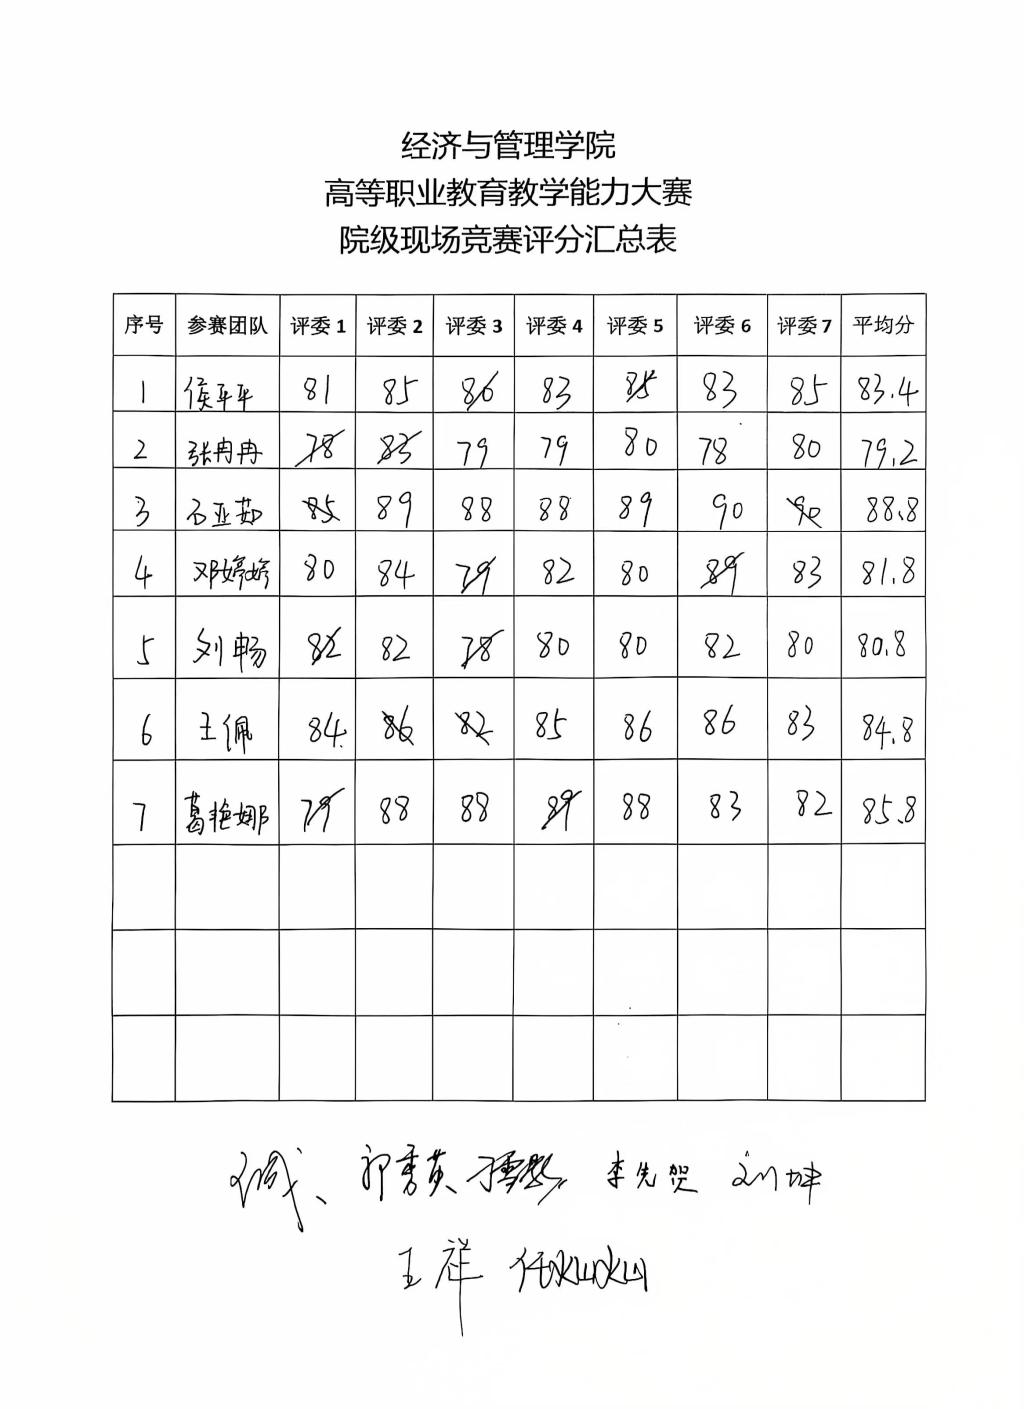 经济与管理学院
高等职业教育教学能力大赛
院级现场竞赛评分汇总表
序号 参赛团队 评委1 评委2 评委3 评委4 评委5 评委6 评委7 平均分
1 侯平平 81 85 86 83 85 83 85 83.4
2 张冉冉 78 83 79 79 80 78 80 79.2
3 石亚茹 85 89 88 88 89 90 90 88.8
4 邓婷婷 80 84 79 82 80 89 83 81.8
5 刘畅 82 82 78 80 80 82 80 80.8
6 王佩 84 86 82 85 86 86 83 84.8
7 葛艳娜 79 88 88 89 88 83 82 85.8
郭秀英 李先贺 刘坤
王祥